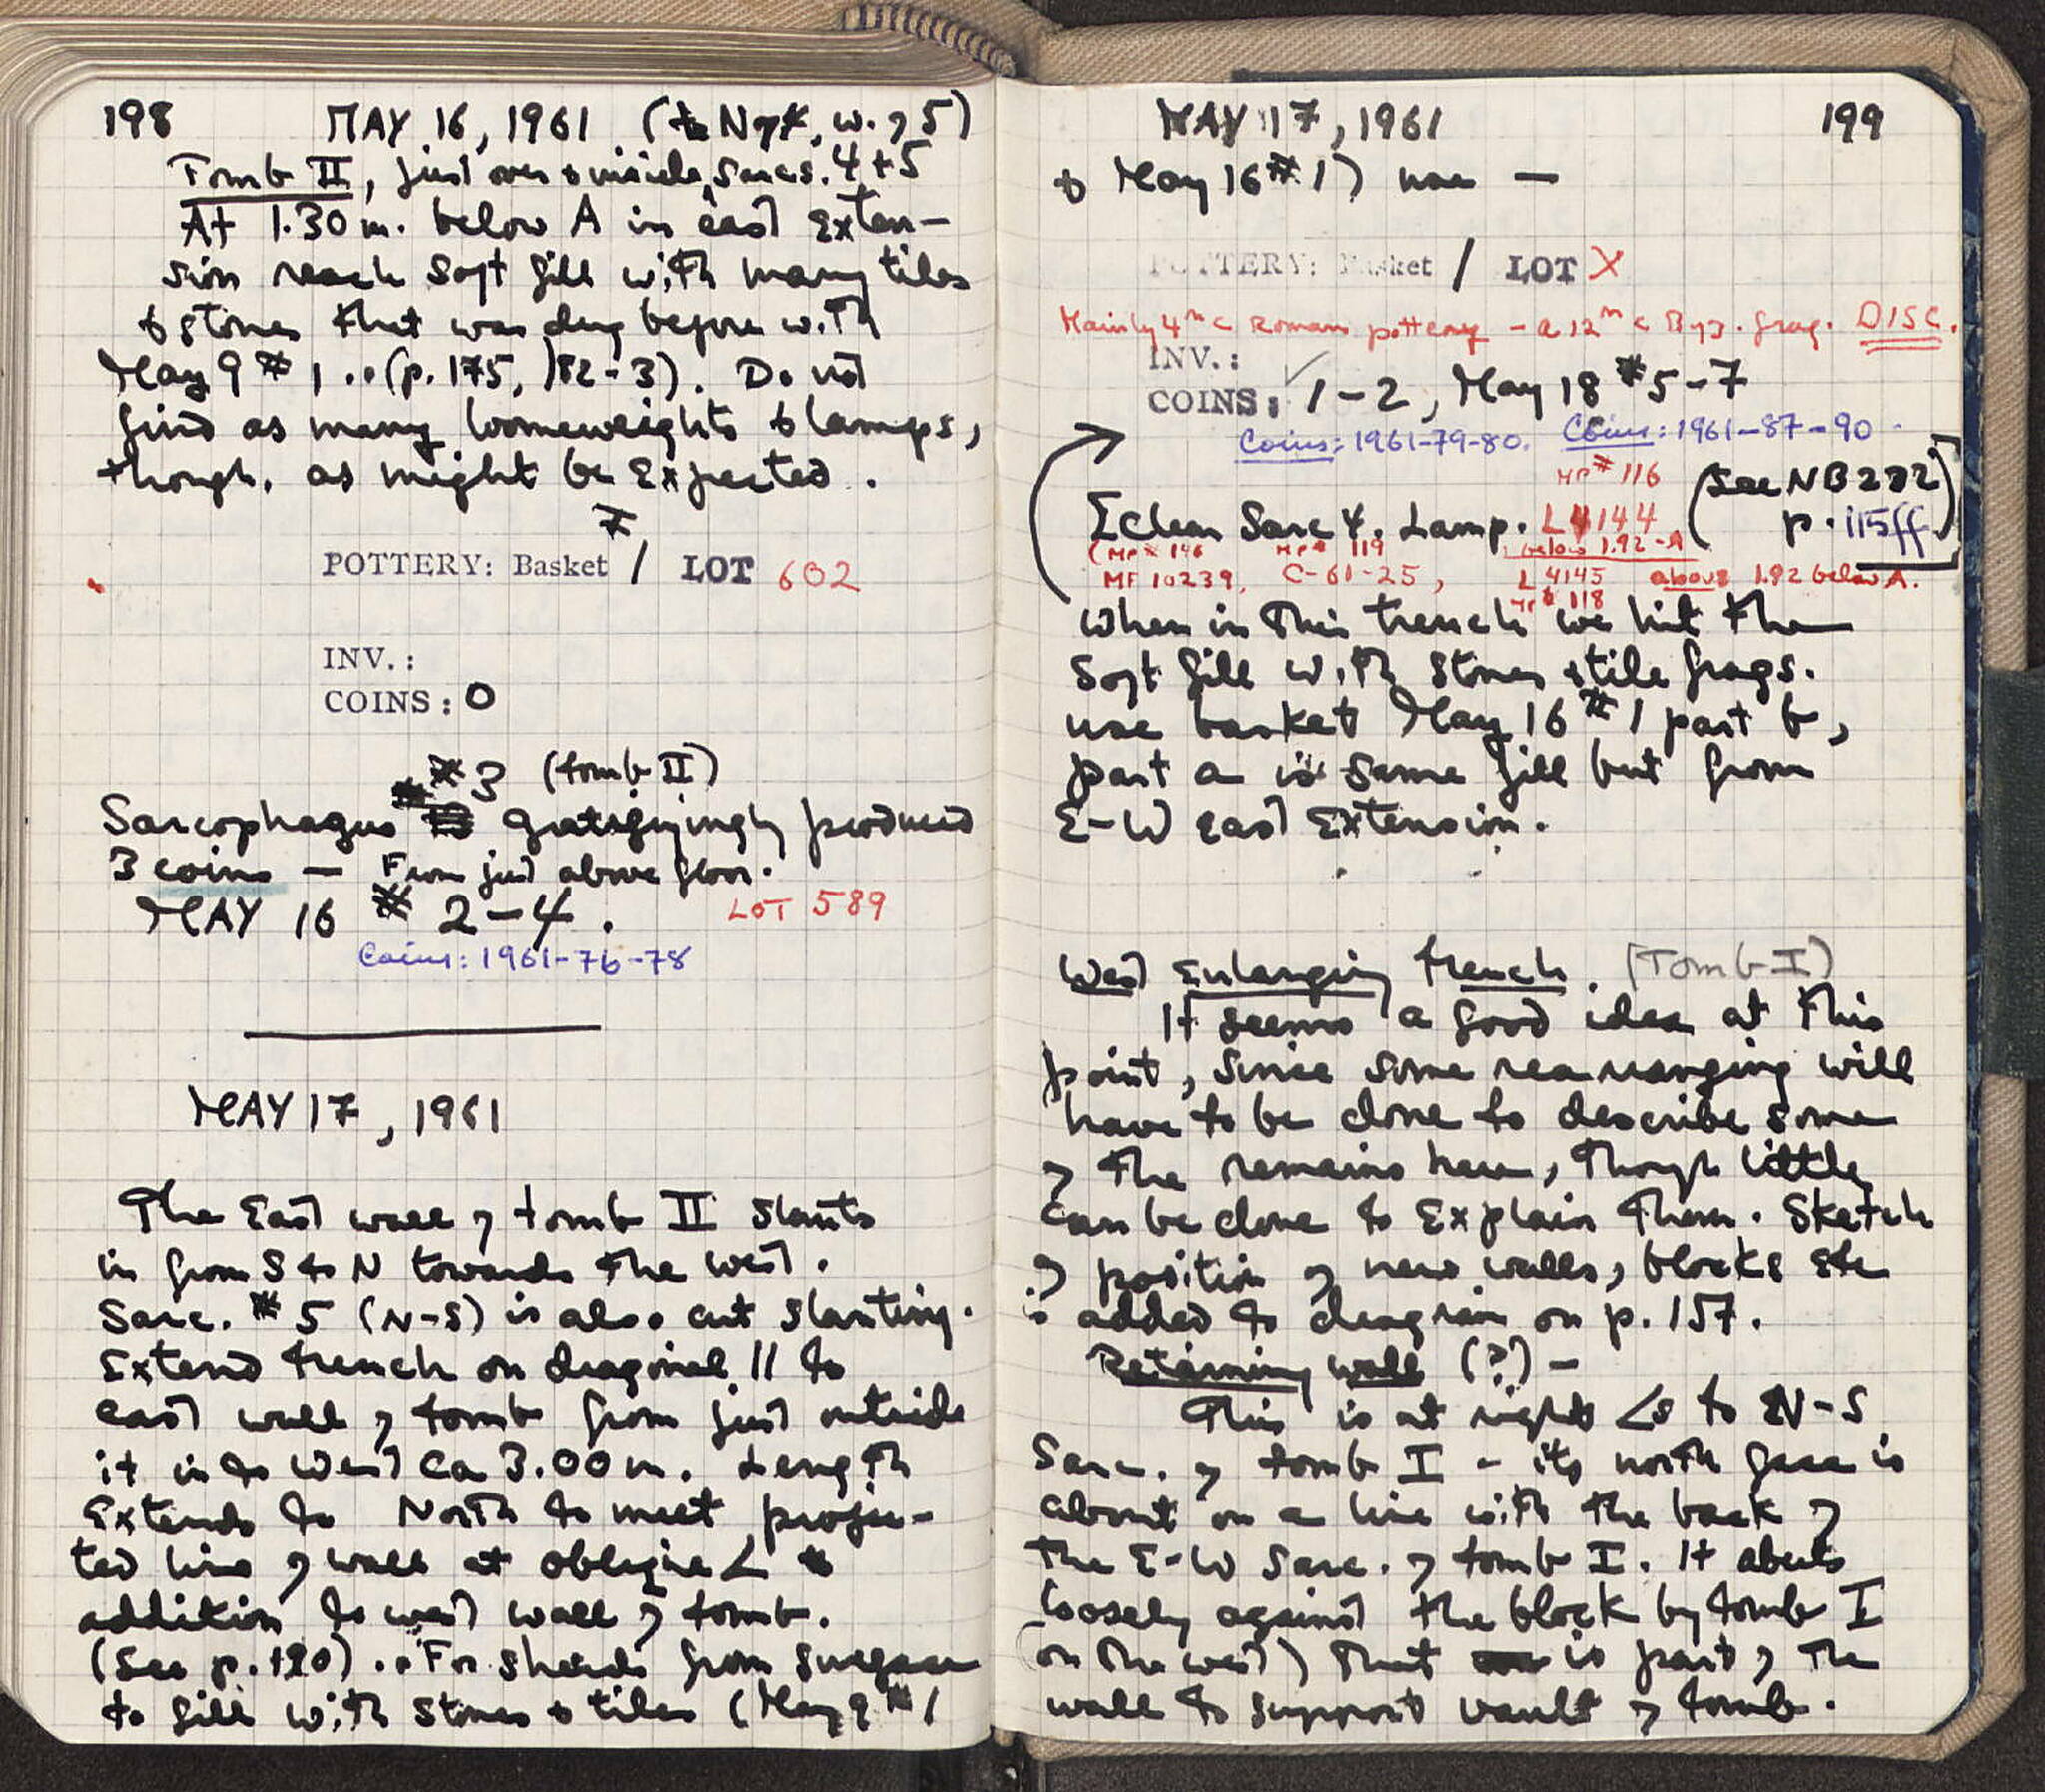 198 MAY 16, 1961 (to N of 4, w. of 5)
Tomb II, just over & inside, sarcs. 4 + 5
At 1.30 m. below A in east exten-
sion reach soft fill with many tiles
& stones that was dug before with
May 9 # 1 .. (p. 175, 182-3). Do not
find as many loomweights & lamps,
though, as might be expected.
POTTERY: Basket #1 LOT 602
INV.:
COINS: 0
#3 (tomb II)
Sarcophagus gratifyingly produced
3 coins — From just above floor.
MAY 16 # 2-4. LOT 589
Coins: 1961-76-78
MAY 17, 1961
The East wall of tomb II slants
in from S to N towards the west.
Sarc. #5 (N-S) is also cut slanting.
Extend trench on diagonal // to
east wall of tomb from just outside
it in to west ca 3.00 m. Length
extends to North to meet projec-
ted line of wall at oblique ∠
addition to west wall of tomb.
(See p. 190) .. For sherds from surface
to fill with stones & tiles (May 9 #1
MAY 17, 1961 199
& May 16 #1) use —
POTTERY: Basket 1 LOT X
Mainly 4th c Roman pottery - a 12th c Byz. frag. DISC.
INV.:
COINS: 1-2, May 18 #5-7
Coins: 1961-79-80. Coins: 1961-87-90
MP# 116 (See NB 232
[clean Sarc 4. Lamp. L 4144 p. 115ff.)]
(MP# 146 MP# 119 below 1.92 - A
MF 10239, C-61-25, L 4145 above 1.92 below A.
MP# 118
When in this trench we hit the
soft fill with stones & tile frags.
use basket May 16 #1 part b,
part a is same fill but from
E-W east extension.
West Enlarging trench. (Tomb I)
It seems a good idea at this
point, since some rearranging will
have to be done to describe some
of the remains here, though little
can be done to explain them. Sketch
of position of new walls, blocks etc
is added to diagram on p. 157.
Retaining wall (?) -
This is at right ∠s to N-S
Sarc. of tomb I - its north face is
about on a line with the back of
the E-W Sarc. of tomb I. It abuts
loosely against the block by tomb I
(on the west) that is part of the
wall to support vault of tomb.